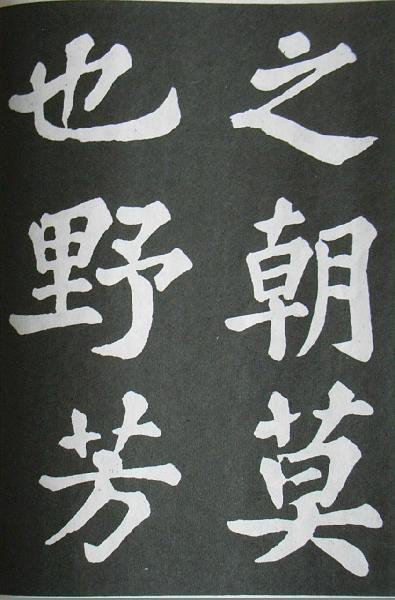 之朝莫
也野芳